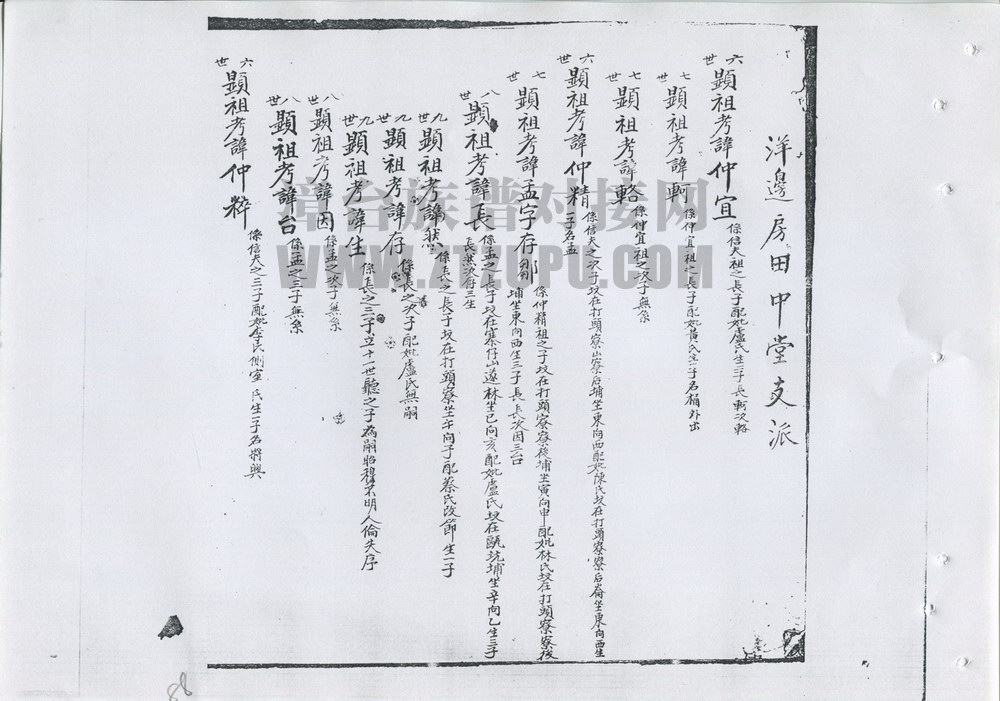 洋邊房田中堂支派
六世 顯祖考諱仲宜 係信夫祖之長子配妣盧氏生二子長軻次輅
七世 顯祖考諱軻 係仲宜祖之長子配妣黃氏生一子名稱外出
七世 顯祖考諱輅 係仲宜祖之次子無系
六世 顯祖考諱仲精 係信夫之次子坟在打頭寮山寮后埔坐東向西配妣陳氏坟在打頭寮寮后崙坐東向西生
一子名孟
七世 顯祖考諱孟字存 係仲精祖之子坟在打頭寮寮後埔坐寅向申配妣林氏坟在打頭寮寮後
埔坐東向西生三子長長次因三台
八世 顯祖考諱長 係孟之長子坟在寨仔山邊林坐巳向亥配妣盧氏坟在 坑埔坐辛向乙生三子
長然次存三生
九世 顯祖考諱然 係長之長子坟在打頭寮坐午向子配蔡氏改節生一子
九世 顯祖考諱存 係長之次子配妣盧氏無嗣
九世 顯祖考諱生 係長之三子立十一世聽之子為嗣昭穆不明人倫失序
八世 顯祖考諱因 係孟之次子無系
八世 顯祖考諱台 係孟之三子無系
六世 顯祖考諱仲粹 係信夫之三子配妣李氏側室 氏生一子名將興
章台族谱对接网
WWW.ZTZUPU.COM
88